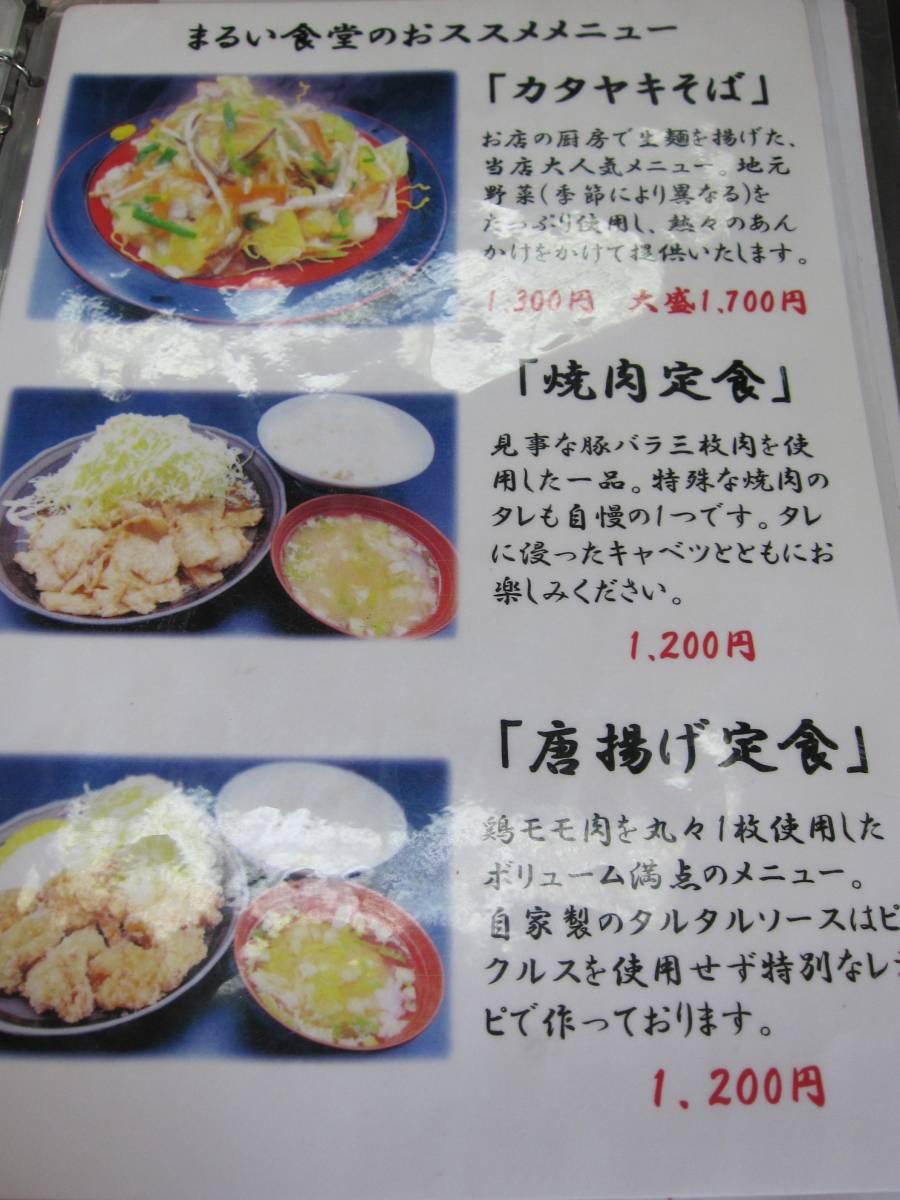 まるい食堂のおススメメニュー
「カタヤキそば」
お店の厨房で生麺を揚げた、
当店大人気メニュー。地元
野菜(季節により異なる)を
たっぷり使用し、熱々のあん
かけをかけて提供いたします。
1,300円 大盛1,700円
「焼肉定食」
見事な豚バラ三枚肉を使
用した一品。特殊な焼肉の
タレも自慢の1つです。タレ
に浸ったキャベツとともにお
楽しみください。
1,200円
「唐揚げ定食」
鶏モモ肉を丸々1枚使用した
ボリューム満点のメニュー。
自家製のタルタルソースはピ
クルスを使用せず特別なレシ
ピで作っております。
1,200円